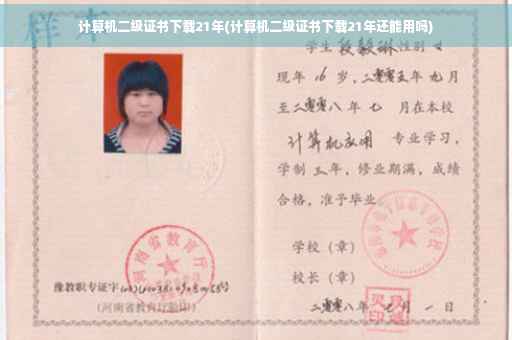 计算机二级证书下载21年(计算机二级证书下载21年还能用吗)
样本
学生 性别 女
现年 16 岁，二零零五年 九 月
至二零零八年 七 月在本校
计算机应用 专业学习，
学制 三 年，修业期满，成绩
合格，准予毕业
学校（章）
校长（章）
二零零八年 七 月 一 日
河南省教育厅
豫教职专证字
（河南省教育厅验印）